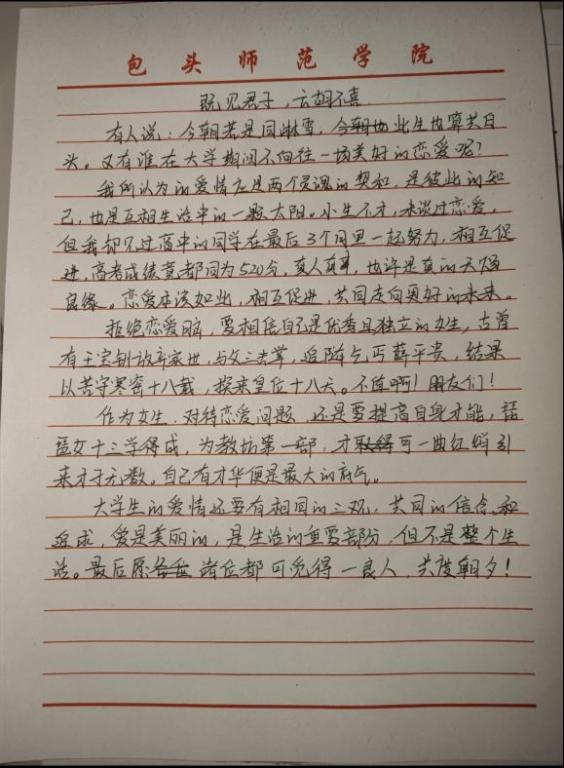 包头师范学院
既见君子，云胡不喜
有人说：今朝若是同淋雪，此生也算共白
头。又有谁在大学期间不向往一场美好的恋爱呢？
我所认为的爱情应是两个灵魂的契和，是彼此的知
己，也是互相生活中的一颗太阳。小生不才，未谈过恋爱，
但我却见过高中的同学在最后3个月里一起努力，相互促
进，高考成绩竟都同为520分，真人真事，也许是真的天赐
良缘。恋爱本该如此，相互促进，共同走向更好的未来。
拒绝恋爱脑，要相信自己是优秀且独立的女生，古曾
有王宝钏放弃家世，与父三击掌，追随乞丐薛平贵，结果
以苦守寒窑十八载，换来皇位十八天。不值啊！朋友们！
作为女生，对待恋爱问题，还是要提高自身才能，琵
琶女十三学得成，为教坊第一部，才可一曲红绡引
来才子无数。自己有才华便是最大的底气。
大学生的爱情还要有相同的三观，共同的信念和
追求，爱是美丽的，是生活的重要部分，但不是整个生
活。最后愿诸位都可觅得一良人，共度朝夕！